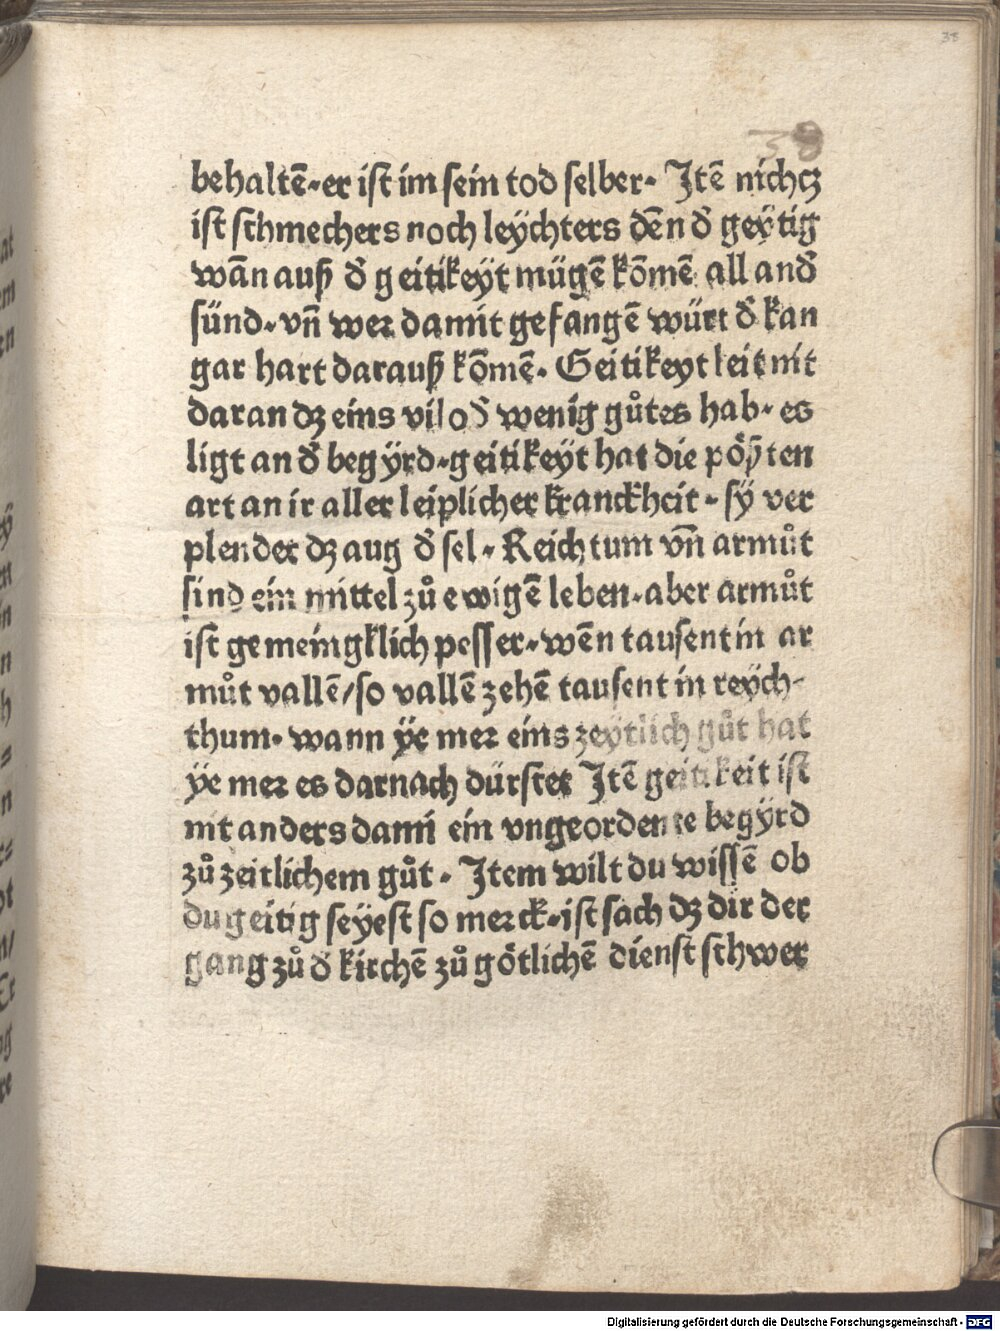 38
38
behaltē·er ist im sein tod selber· Jtē nichcz
ist schmechers noch leÿchters dēn d̄ geÿtig
wān auß d̄ geitikeÿt mügē kōmē all and̄
sünd·vn̄ wer damit gefangē würt d̄ kan
gar hart darauß kōmē· Geitikeyt leit nit
daran dz eins vil od̄ wenig gůtes hab·es
ligt an d̄ begÿrd·geitikeÿt hat die pöp̄ten
art an ir aller leiplicher kranckheit·sÿ ver
plender dz aug d̄ sel·Reichtum vn̄ armůt
sind ein mittel zů ewigē leben·aber armůt
ist gemeingklich pesser·wēn tausent in ar
můt vallē/so vallē zehē tausent in reÿch-
thum·wann ÿe mer eins zeÿtlich gůt hat
ÿe mer es darnach dürstet Jtē geitikeit ist
nit anders dann ein vngeordente begÿrd
zů zeitlichem gůt· Jtem wilt du wissē ob
du geitig seÿest so merck·ist sach dz dir der
gang zů d̄ kirchē zů götlichē dienst schwer
Digitalisierung gefördert durch die Deutsche Forschungsgemeinschaft - DFG